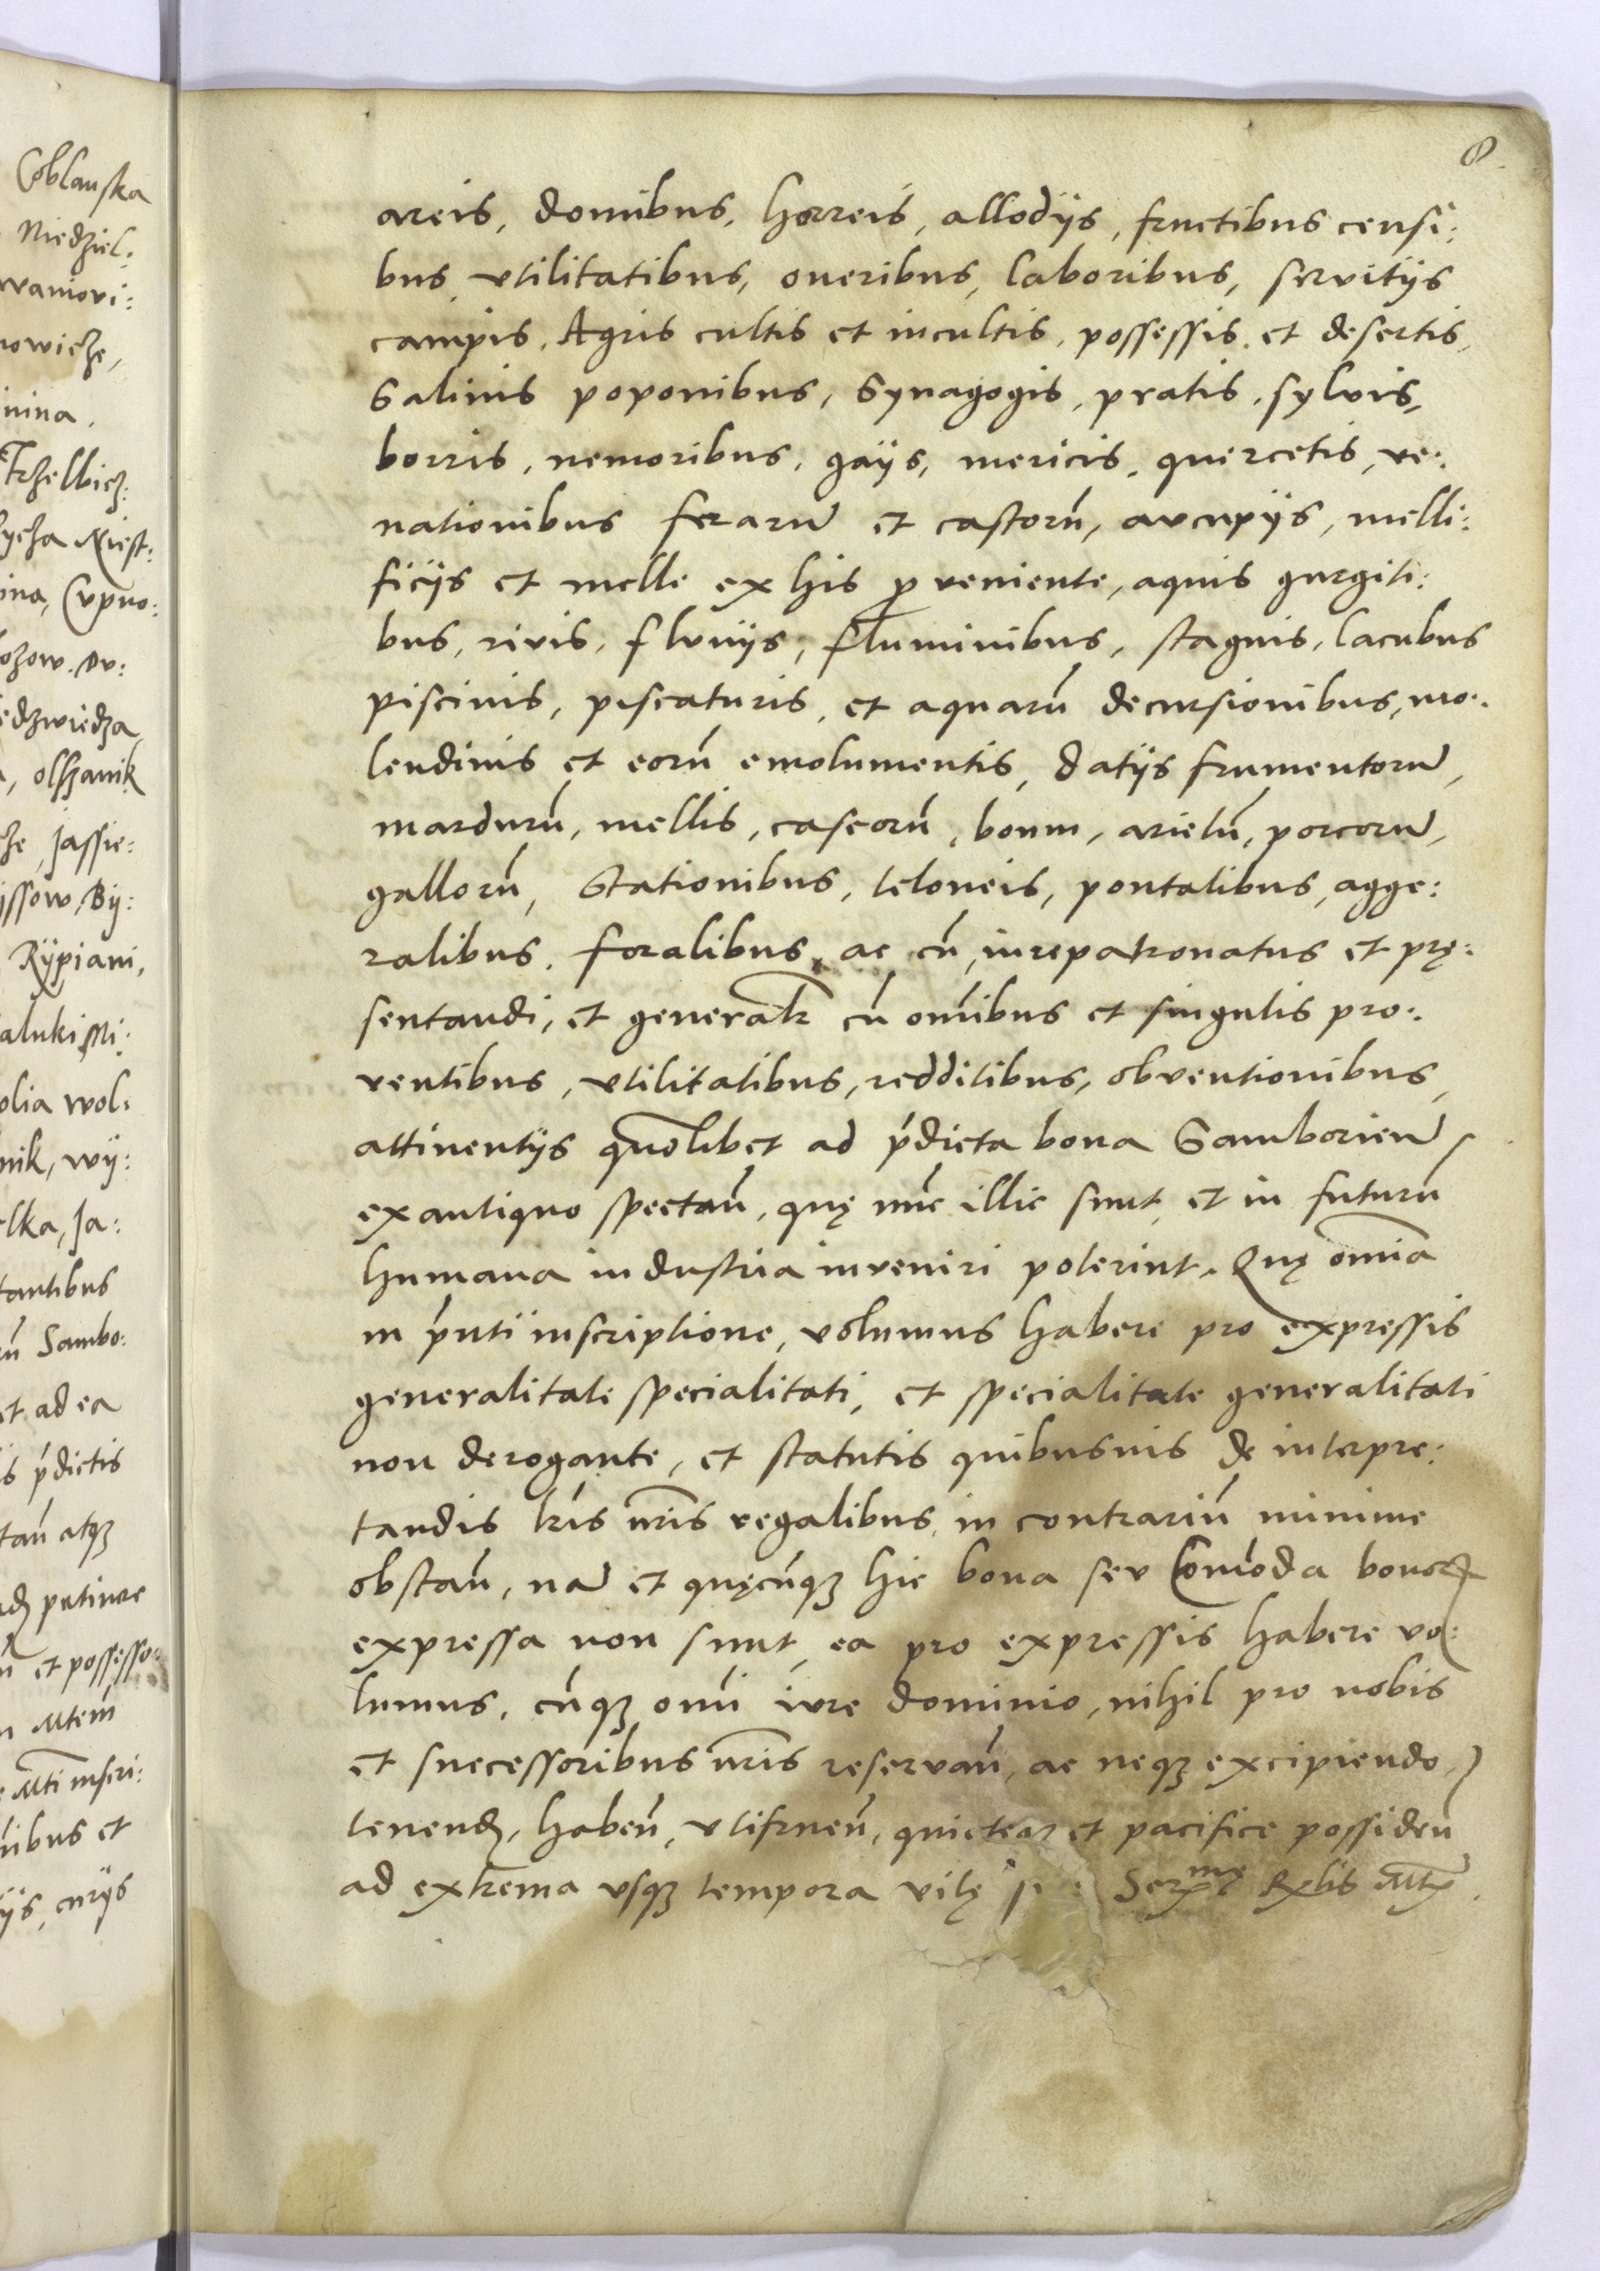 Coblanska
Niedziel:
waniovi:
nowicze,
inina.
Trzelbicz:
lycha Niest:
ona, Cupno:
ozow. Du:
edzwiedza
, olszanik
che, Jassie:
issow, By:
Rÿpiani,
aluki, Mi:
olia wol:
nik, wÿ:
elka, Ja:
tantibus
rū Sambo:
et ad ea
is p̄dictis
tan̄ atqȝ
pertinere
et possesso:
Mtem
Mti inscri:
nibus et
ijs, curijs
8.
areis, domibus, horreis, allodijs, fructibus censi:
bus, vtilitatibus, oneribus, laboribus, servitijs
campis, Agris cultis et incultis, possessis. et desertis,
Salinis poponibus, Synagogis, pratis, sylvis,
borris, nemoribus, gaijs, mericis, quercetis, ve:
nationibus ferarū et castorū, avcupijs, melli:
ficijs et melle ex his ꝓveniente, aquis gurgiti:
bus, rivis, flvuijs, fluminibus, stagnis, lacubus
piscinis, piscaturis, et aquarū decursionibus, mo:
lendinis et eorū emolumentis, datijs frumentorū,
mardurū, mellis, caseorū, boum, arietū, porcorū,
gallorū, Stationibus, teloneis, pontalibus, agge:
ralibus. foralibus, ac cū iurepatronatus et prę:
sentandi, et generalr̄ cū omībus et singulis pro:
ventibus, vtilitatibus, redditibus, obventionibus,
attinentijs quolibet ad p̄dicta bona Samborien̄
exantiquo spectan̄, quę nūc illic sunt et in futurū
humana industria inveniri poterint. Quę om̄ia
in p̄nti inscriptione, volumus habere pro expressis
generalitate specialitati, et specialitate generalitati
non derogante, et statutis quibusuis de interpre:
tandis lr̄is nr̄is regalibus in contrariū minime
obstan̄, nā et quęcūqȝ hic bona sev Com̄oda bonorꝝ
expressa non sunt, ea pro expressis habere vo:
lumus, cūqȝ omī ivre dominio, nihil pro nobis
et successoribus nr̄is reservan̄, ac neqȝ excipiendo,
tenend̄, haben̄, vtifruen̄, quieteqȝ et pacifice possiden̄
ad extrema vsqȝ tempora vitę Serᵐę Rglis Mtis.